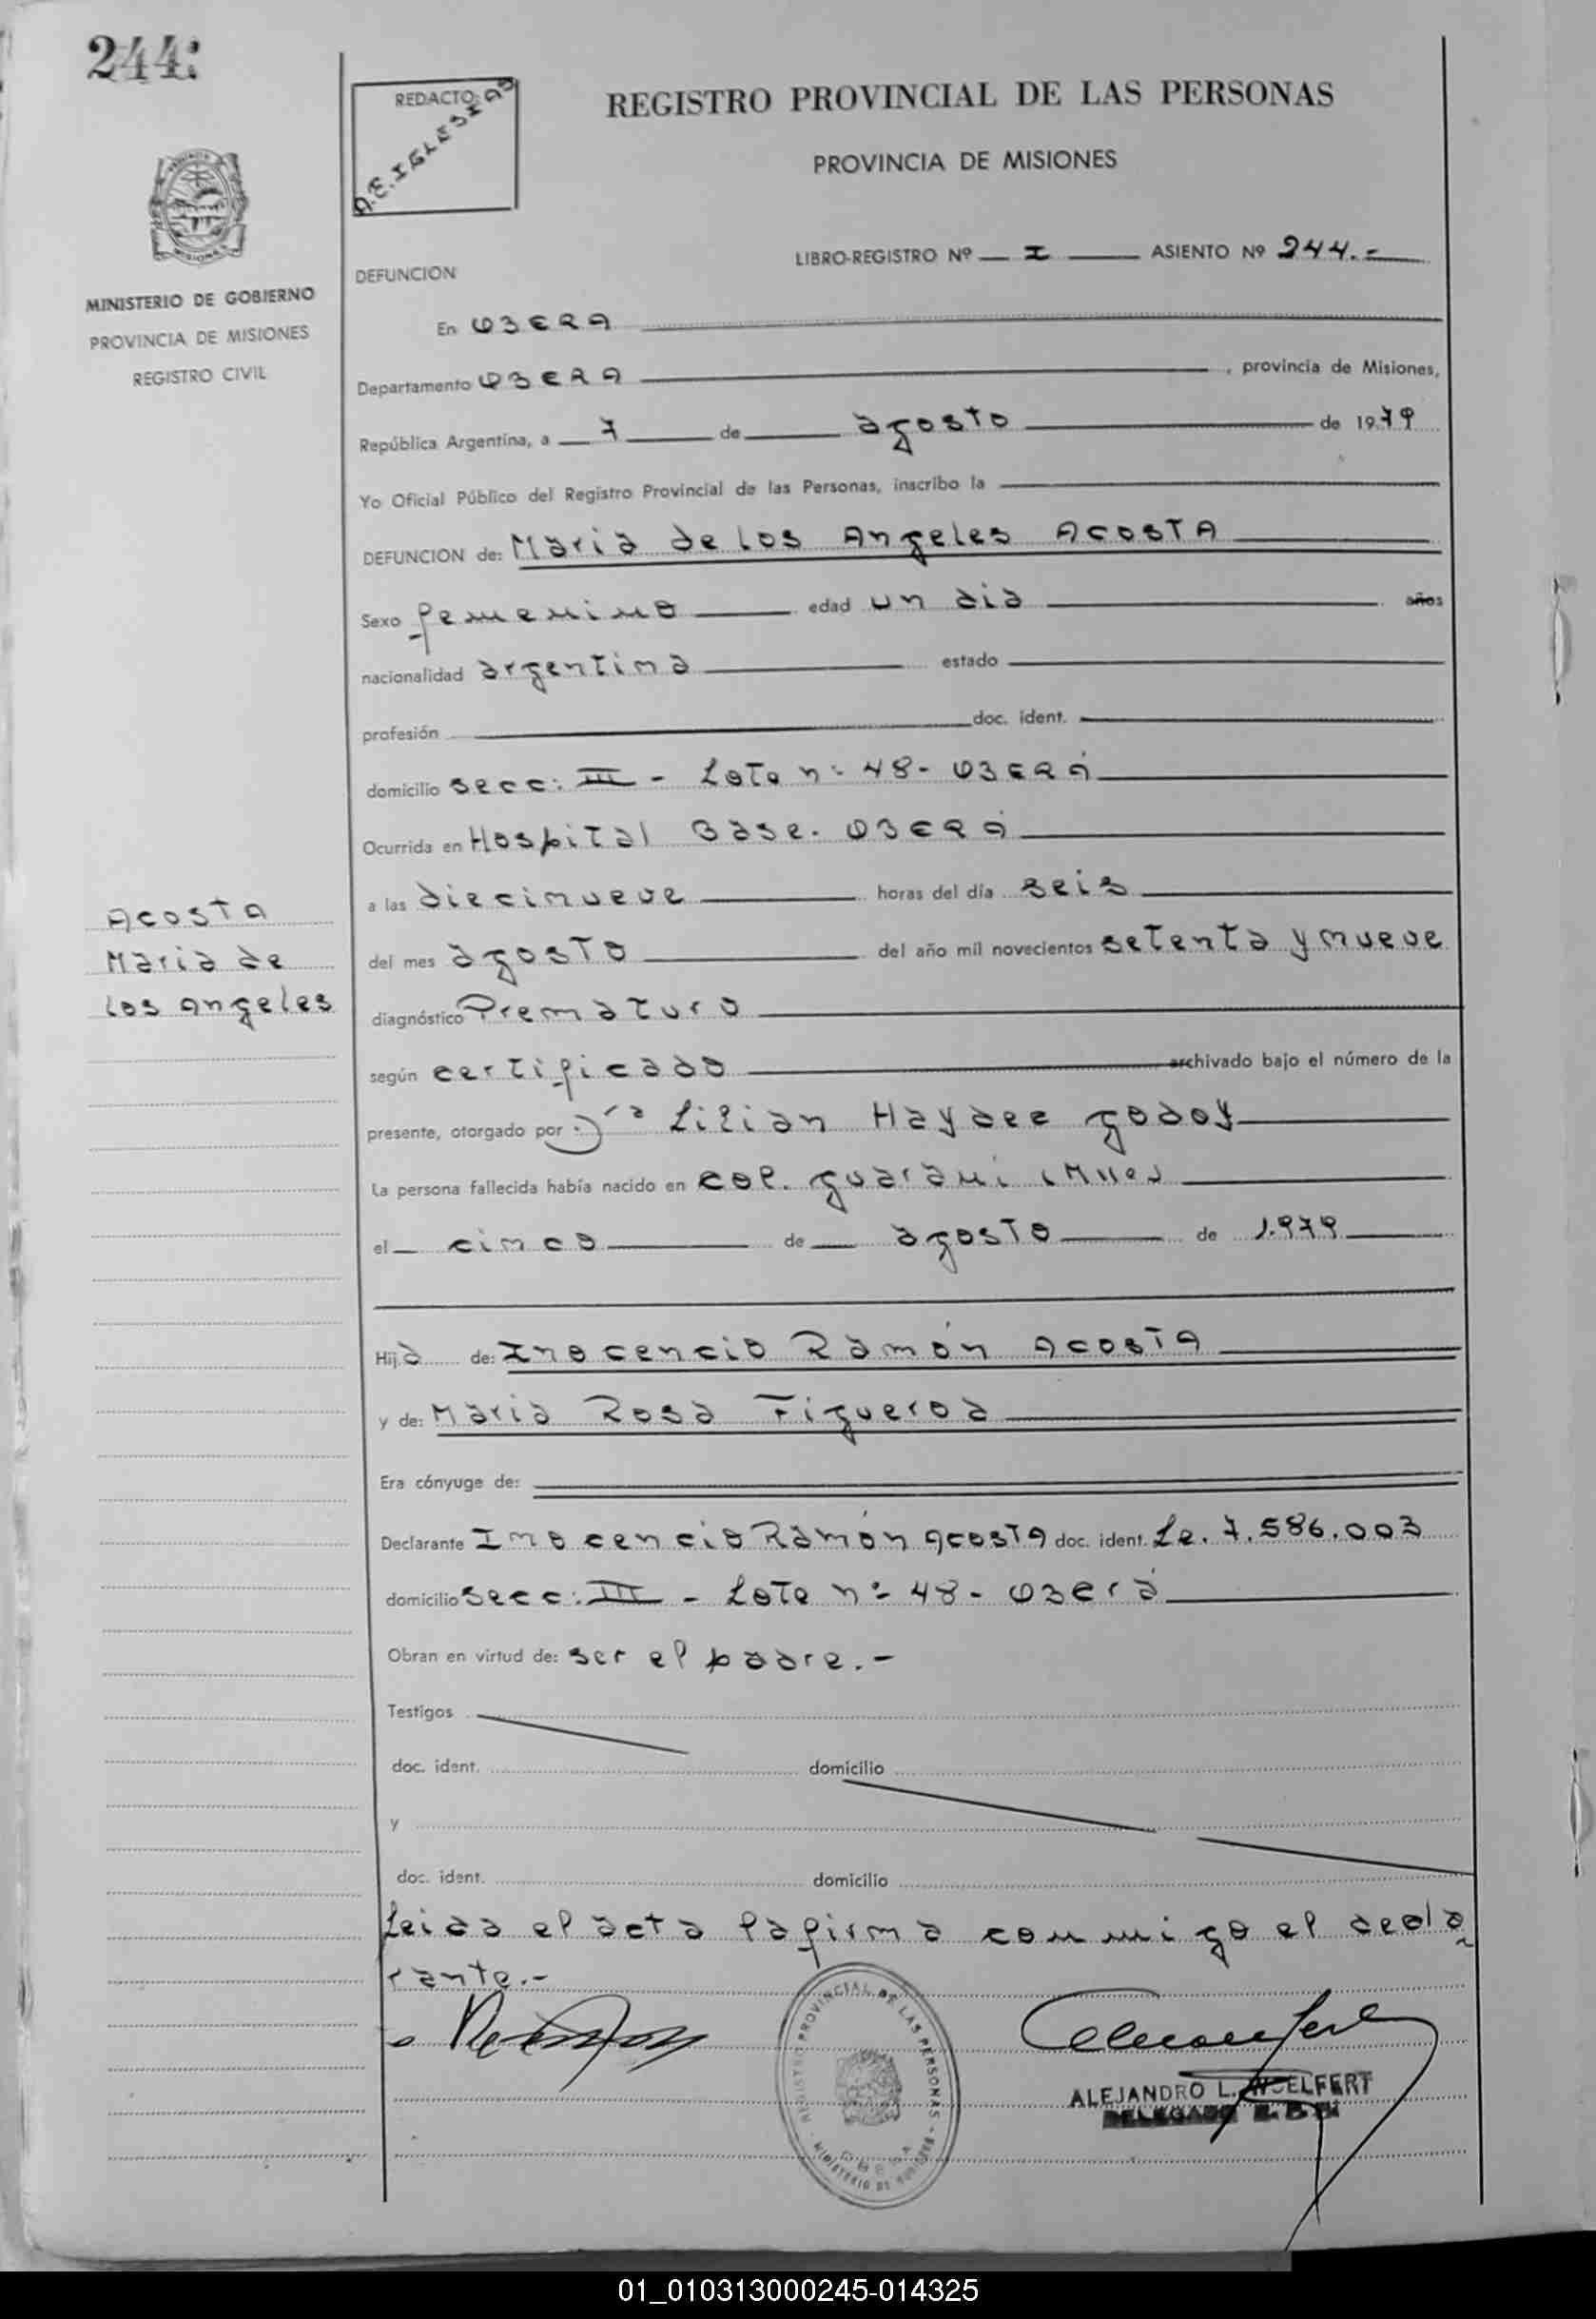 244.
REDACTO:
A.E. IGLESIAS
REGISTRO PROVINCIAL DE LAS PERSONAS
PROVINCIA DE MISIONES
MISIONES
MINISTERIO DE GOBIERNO
PROVINCIA DE MISIONES
REGISTRO CIVIL
LIBRO-REGISTRO Nº I ASIENTO Nº 244.-
DEFUNCION
En OBERA
Departamento OBERA , provincia de Misiones,
República Argentina, a 7 de agosto de 1979
Yo Oficial Público del Registro Provincial de las Personas, inscribo la
DEFUNCION de: Maria de los Angeles ACOSTA
Sexo femenino edad un dia años
nacionalidad argentina estado
profesión doc. ident.
domicilio secc: III - Lote nº 48- OBERÁ
Ocurrida en Hospital Base. OBERÁ
a las diecinueve horas del día seis
del mes agosto del año mil novecientos setenta y nueve
ACOSTA
Maria de
los Angeles
diagnóstico Prematuro
según certificado archivado bajo el número de la
presente, otorgado por Dra Lilian Haydee Godoy
La persona fallecida había nacido en Col. Guaraní (Mnes)
el cinco de agosto de 1.979
Hija de: Inocencio Ramón ACOSTA
y de: Maria Rosa Figueroa
Era cónyuge de:
Declarante Inocencio Ramón Acosta doc. ident. Le. 7.586.003
domicilio secc: III - Lote nº 48- Oberá
Obran en virtud de: ser el padre.-
Testigos
doc. ident. domicilio
y
doc. ident. domicilio
Leida el acta la firma conmigo el decla
rante.-
REGISTRO PROVINCIAL DE LAS PERSONAS
MINISTERIO DE GOBIERNO
OBERA
ALEJANDRO L. WOELFERT
DELEGADO
01_010313000245-014325